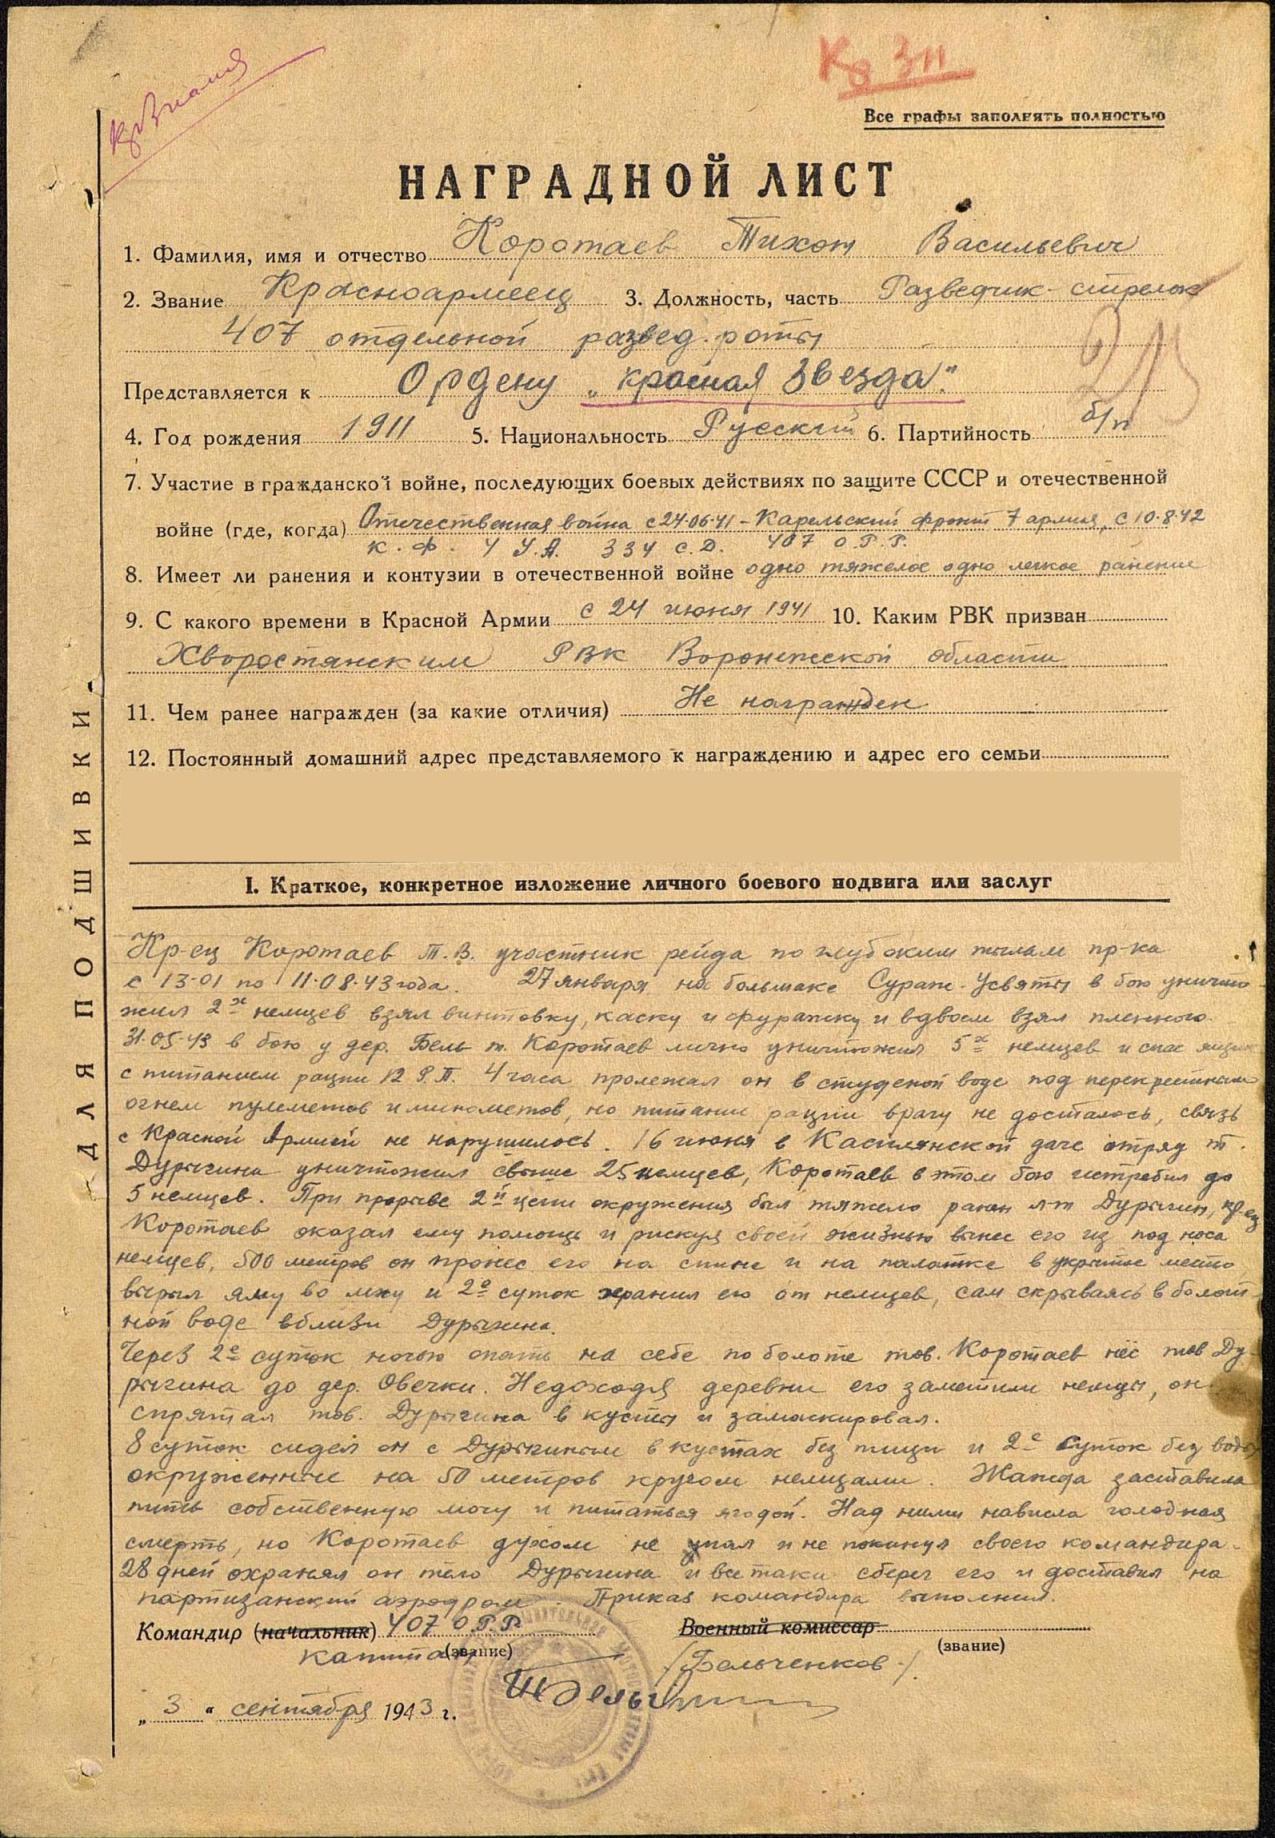 Кр Знамя
Кр Зн
Все графы заполнять полностью
НАГРАДНОЙ ЛИСТ
1. Фамилия, имя и отчество Коротаев Тихон Васильевич
2. Звание Красноармеец 3. Должность, часть Разведчик-стрелок
407 отдельной развед. роты
Представляется к Ордену „Красная Звезда"
4. Год рождения 1911 5. Национальность Русский 6. Партийность б/п
7. Участие в гражданской войне, последующих боевых действиях по защите СССР и отечественной
войне (где, когда) Отечественная война с 24-06-41 – Карельский фронт 7 армия, с 10-8-42
К. Ф. 4 У.А. 334 с.д. 407 О.Р.Р.
8. Имеет ли ранения и контузии в отечественной войне одно тяжелое одно легкое ранение
9. С какого времени в Красной Армии с 24 июня 1941 10. Каким РВК призван
Хворостянским РВК Воронежской области
11. Чем ранее награжден (за какие отличия) Не награжден
12. Постоянный домашний адрес представляемого к награждению и адрес его семьи
ДЛЯ ПОДШИВКИ
I. Краткое, конкретное изложение личного боевого подвига или заслуг
Кр-ец Коротаев Т.В. участник рейда по глубоким тылам пр-ка
с 13-01 по 11-08-43 года. 27 января на большаке Сураж-Усвяты в бою уничто
жил 2х немцев взял винтовку, каску и фуражку и вдвоем взял пленного.
31-05-43 в бою у дер. Бель т. Коротаев лично уничтожил 5х немцев и спас ящик
с питанием рации 12 Р.П. 4 часа пролежал он в студеной воде под перекрестным
огнем пулеметов и минометов, но питание рации врагу не досталось, связь
с Красной Армией не нарушилось. 16 июня в Касплянской даче отряд т.
Дурыгина уничтожил свыше 25 немцев, Коротаев в этом бою истребил до
5 немцев. При прорыве 2й цепи окружения был тяжело ранен л-т Дурыгин, кр-ец
Коротаев оказал ему помощь и рискуя своей жизнью вынес его из под носа
немцев, 500 метров он пронес его на спине и на палатке в укрытое место
вырыл яму во мху и 2е суток хранил его от немцев, сам скрываясь в болот
ной воде вблизи Дурыгина.
Через 2е суток ночью опять на себе по болоте тов. Коротаев нёс тов Ду-
рыгина до дер. Овечки. Недоходя деревни его заметили немцы, он
спрятал тов. Дурыгина в кусты и замаскировал.
8 суток сидел он с Дурыгиным в кустах без пищи и 2е суток без воды
окруженные на 50 метров кругом немцами. Жажда заставила
пить собственную мочу и питаться ягодой. Над ними нависла голодная
смерть, но Коротаев духом не упал и не покинул своего командира.
28 дней охранял он тело Дурыгина и все таки сберег его и доставил на
партизанский аэродром. Приказ командира выполнил.
Командир (начальник) 407 О.Р.Р. Военный комиссар
капитан (звание) (звание)
/Бельченков/
„3" сентября 1943 г.